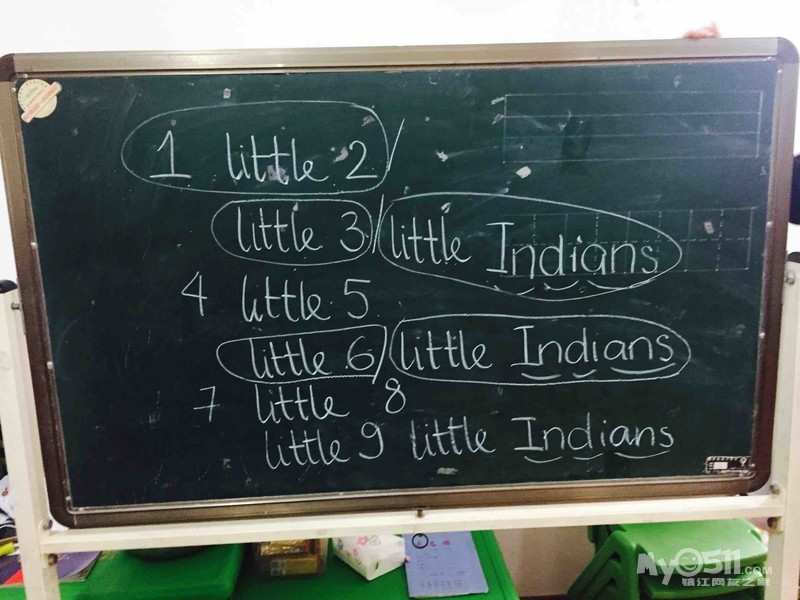 1 little 2 /
little 3 / little Indians
4 little 5
little 6 / little Indians
7 little 8
little 9 little Indians
My0511.COM
镇江网友之家